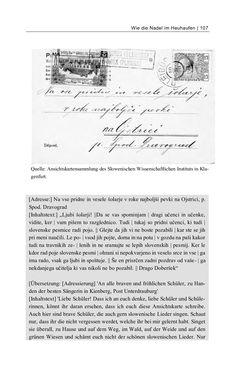 Wie die Nadel im Heuhaufen | 107
Na vse pridne in vesele šolarje
v roke najboljši pevki
na Ojstrici
p. Spod. Dravograd
Quelle: Ansichtskartensammlung des Slowenischen Wissenschaftlichen Instituts in Kla-
genfurt.
[Adresse:] Na vse pridne in vesele šolarje v roke najboljši pevki na Ojstrici, p.
Spod. Dravograd
[Inhaltstext:] „Ljubi šolarji! ||Da se vas spominjam | dragi učenci in učenke,
vidite, ker | vam pišem to razgledni- | co. Tukaj vam pošljem | nekaj otrok, ki tudi |
slovenske pesmice radi pojo. || Glejte da jih vi ne boste pozabili | kar ste se jih
pri meni naučili. Le po- | vsod in vedno jih pojte, doma in na potu | v gozdu in na pašri kakor
tudi na travnikih ze- | lenih in ne sramujte se lepih slovenskih | pesmij. Ker
kdor se sramuje lepe sloven- | ske pesmi | ohrani si nepokvarjeno in veselo srce in vse | ga
ima rado, vsak ga ljubi in spoštuje. || Še en prisrčen zadni pozdrav od vaše- | ga
nekdanjega učitelja ki vas nikoli ne bo pozabil. || Drago Doberlek“
[Übersetzung: [Adressierung] 'An alle braven und fröhlichen Schüler, zu Han-
den der besten Sängerin in Kienberg, Post Unterdrauburg'
[Inhaltstext] 'Liebe Schüler! Dass ich an euch denke, liebe Schüler und Schüle-
rinnen, könnt ihr daran erkennen, dass ich euch diese Ansichtskarte schreibe.
Auch hier sind brave Schüler, die auch gern slowenische Lieder singen. Schaut
nur, dass ihr die nicht vergessen werdet, welche ihr bei mir gelernt habt. Singet
sie überall, zu Hause und auf dem Weg, im Wald, auf der Weide und auf den
grünen Wiesen und schämt euch nicht der schönen slowenischen Lieder. Nur